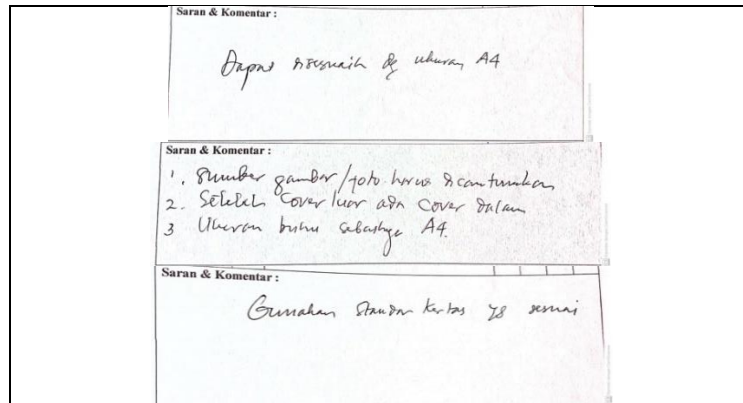 Saran & Komentar :
Dapat disesuaikn dg ukuran A4
Saran & Komentar :
1. Sumber gambar/foto harus dicantumkan
2. Setelah cover luar ada cover dalam
3 Ukuran buku sebaiknya A4.
Saran & Komentar :
Gunakan standar kertas yg sesuai